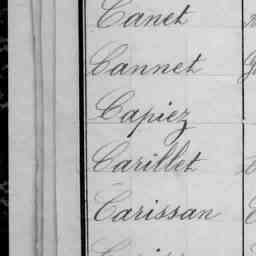 Canet
Cannet
Capiez
Carillet
Carissan